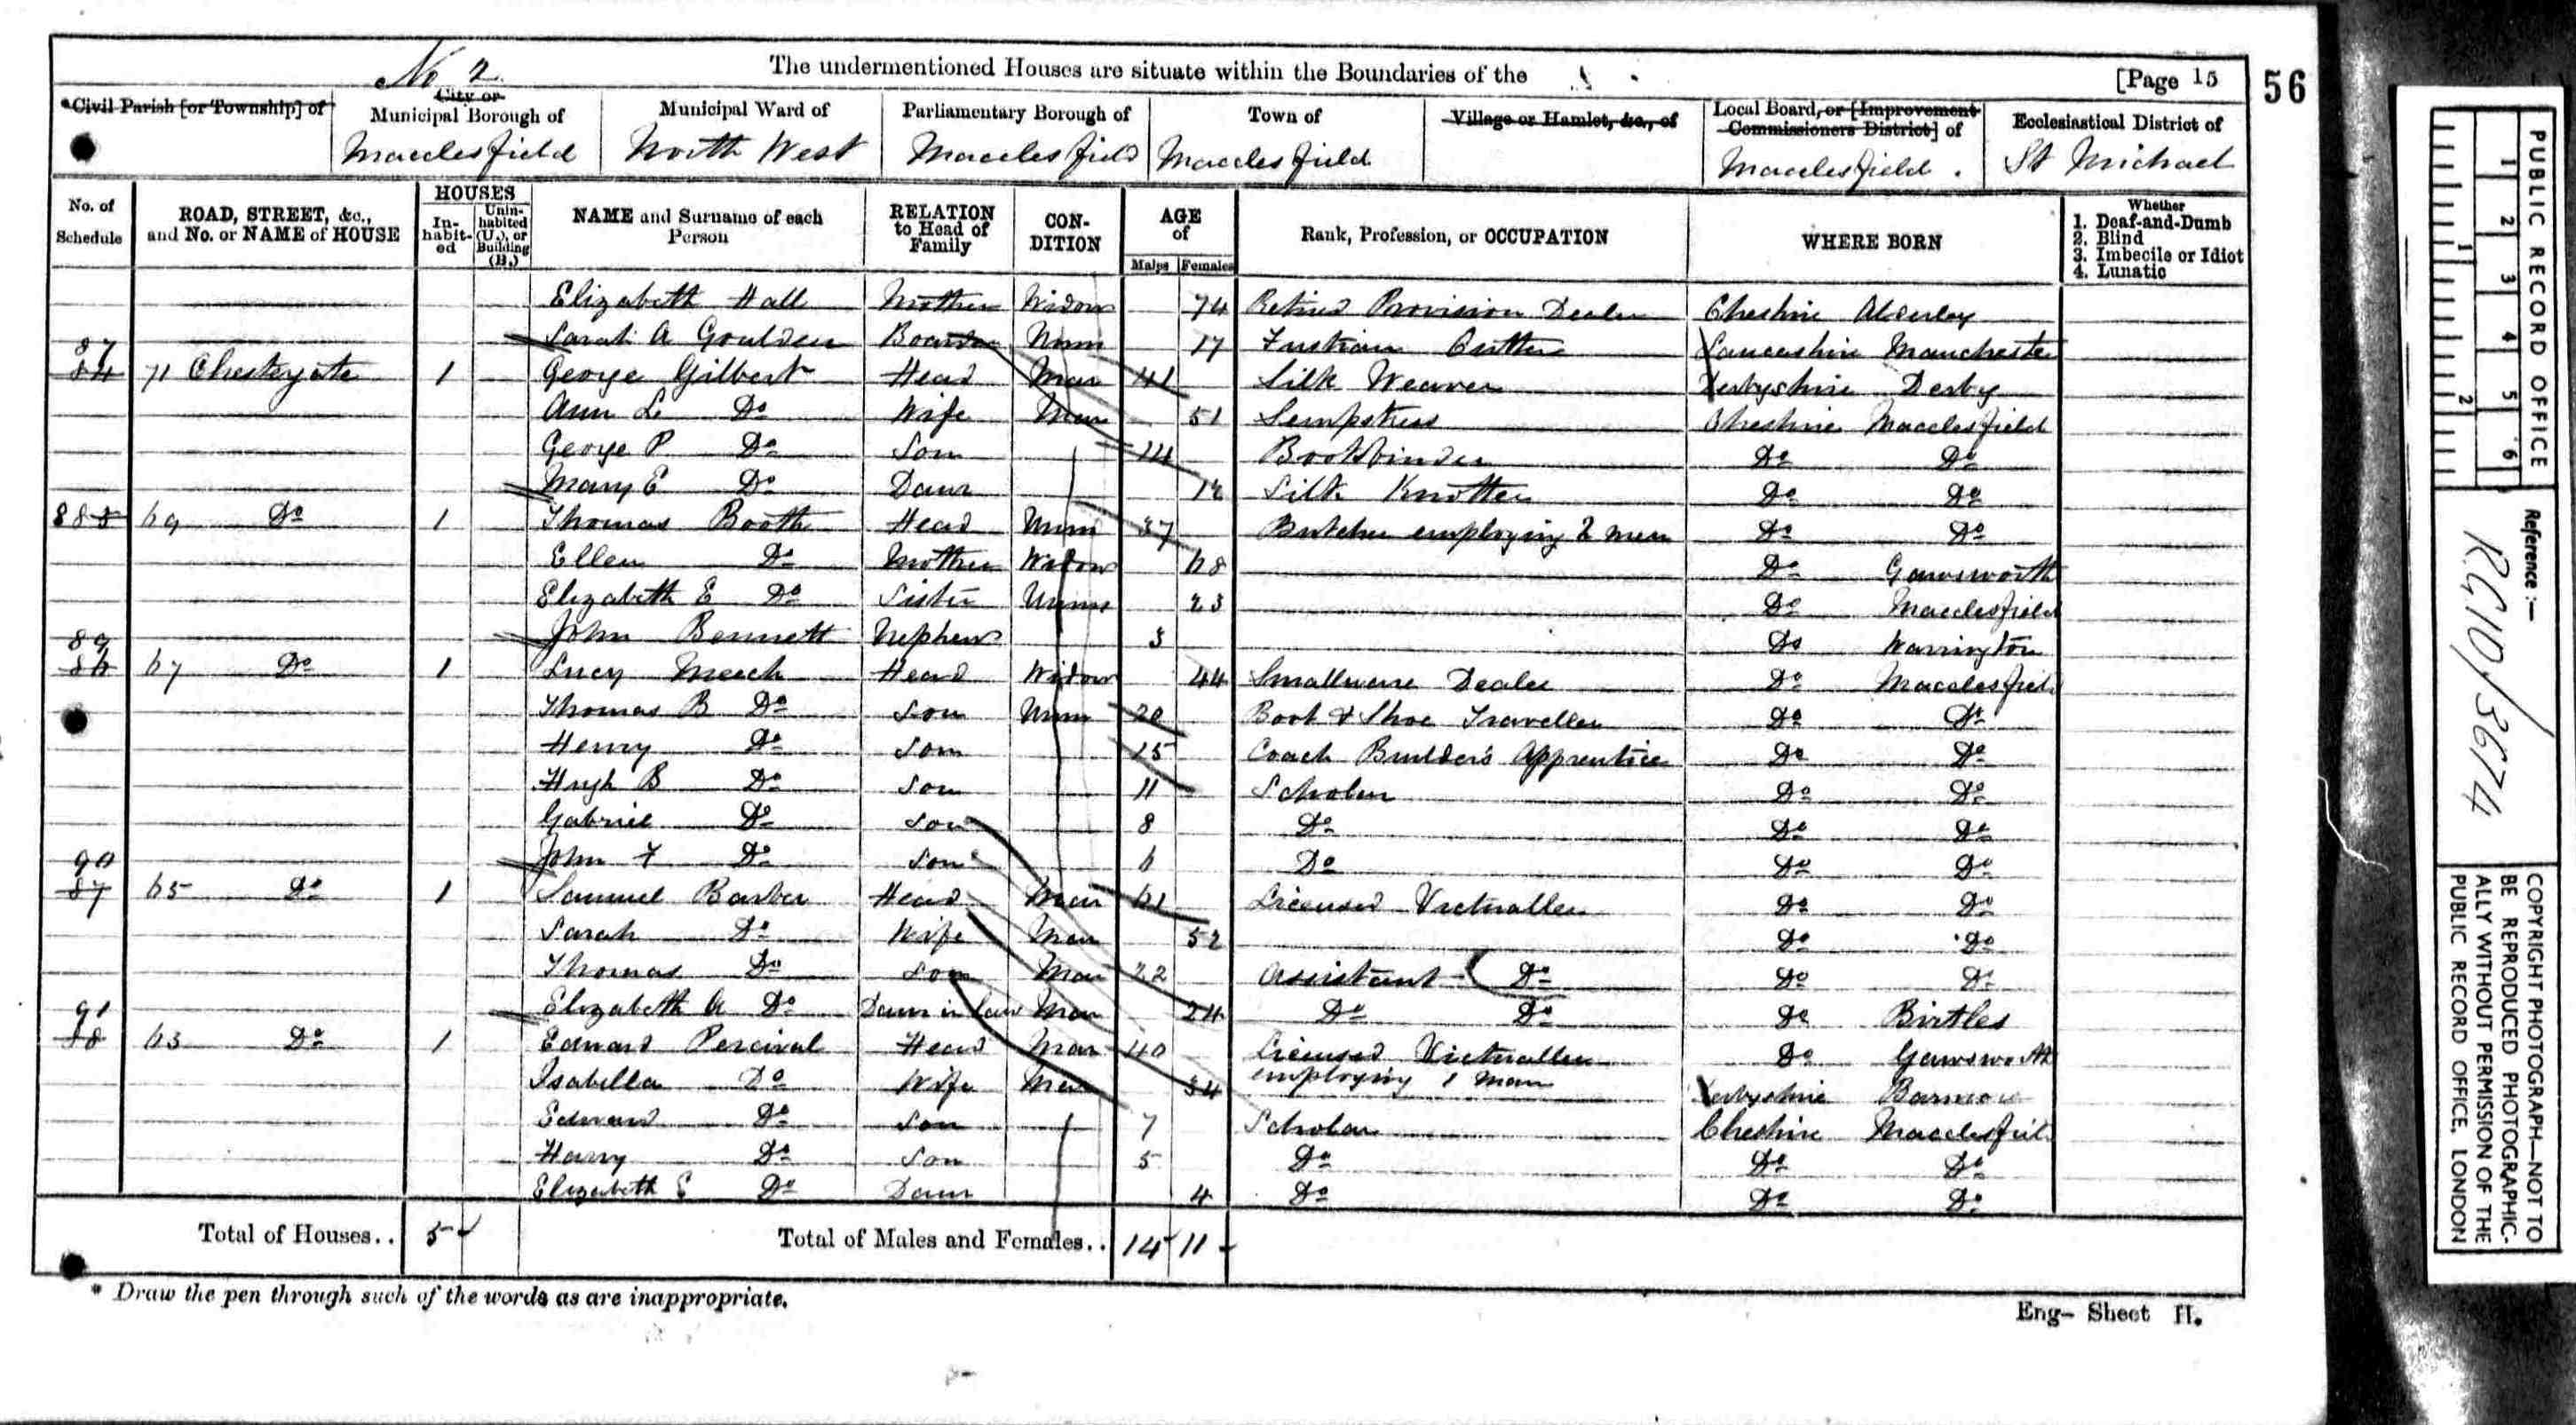 No 2
The undermentioned Houses are situate within the Boundaries of the
[Page 15
56
Civil Parish [or Township] of
City or Municipal Borough of
Macclesfield
Municipal Ward of
North West
Parliamentary Borough of
Macclesfield
Town of
Macclesfield
Village or Hamlet, &c., of
Local Board, or [Improvement Commissioners District] of
Macclesfield.
Ecclesiastical District of
St Michael
No. of Schedule
ROAD, STREET, &c., and No. or NAME of HOUSE
HOUSES
In-habit-ed
Unin-habited (U.), or Building (B.)
NAME and Surname of each Person
RELATION to Head of Family
CON-DITION
AGE of
Males Females
Rank, Profession, or OCCUPATION
WHERE BORN
Whether
1. Deaf-and-Dumb
2. Blind
3. Imbecile or Idiot
4. Lunatic
Elizabeth Hall Mother Widow 74 Retired Provision Dealer Cheshire Alderley
Sarah A Goulden Boarder Unm 17 Fustian Cutter Lancashire Manchester
87 84 71 Chestergate 1 George Gilbert Head Mar 41 Silk Weaver Derbyshire Derby
Ann L Do Wife Mar 51 Sempstress Cheshire Macclesfield
George P Do Son 14 Bookbinder Do Do
Mary E Do Daur 12 Silk Knotter Do Do
88 69 Do 1 Thomas Booth Head Unm 37 Butcher employing 2 men Do Do
Ellen Do Mother Widow 68 Do Gawsworth
Elizabeth E Do Sister Unm 23 Do Macclesfield
John Bennett Nephew 3 Do Warrington
89 86 67 Do 1 Lucy Meech Head Widow 44 Smallware Dealer Do Macclesfield
Thomas B Do Son Unm 20 Boot & Shoe Traveller Do Do
Henry Do Son 15 Coach Builder's Apprentice Do Do
Hugh B Do Son 11 Scholar Do Do
Gabriel Do Son 8 Do Do Do
John F Do Son 6 Do Do Do
90 87 65 Do 1 Samuel Barber Head Mar 61 Licensed Victualler Do Do
Sarah Do Wife Mar 52 Do Do
Thomas Do Son Mar 22 Assistant Do Do Do
Elizabeth A Do Daur in Law Mar 24 Do Do Do Birtles
91 88 63 Do 1 Edward Percival Head Mar 40 Licensed Victualler employing 1 man Do Gawsworth
Isabella Do Wife Mar 34 Derbyshire
Edward Do Son 7 Scholar Cheshire Macclesfield
Harry Do Son 5 Do Do Do
Elizabeth E Do Daur 4 Do Do Do
Total of Houses.. 5
Total of Males and Females.. 14 11
* Draw the pen through such of the words as are inappropriate.
Eng- Sheet H.
PUBLIC RECORD OFFICE
1 2 3 4 5 6
1 2
Reference:-
RG10/3674
COPYRIGHT PHOTOGRAPH—NOT TO BE REPRODUCED PHOTOGRAPHIC-ALLY WITHOUT PERMISSION OF THE PUBLIC RECORD OFFICE, LONDON